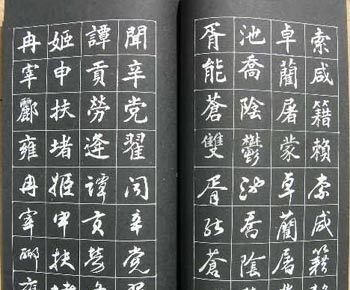 索咸籍賴索咸籍
卓藺屠蒙卓藺屠
池喬陰鬱池喬陰
胥能蒼雙胥能蒼
聞辛党翟闻辛党
譚貢勞逄譚貢勞
姬申扶堵姬申扶
冉宰酈雍冉宰酈